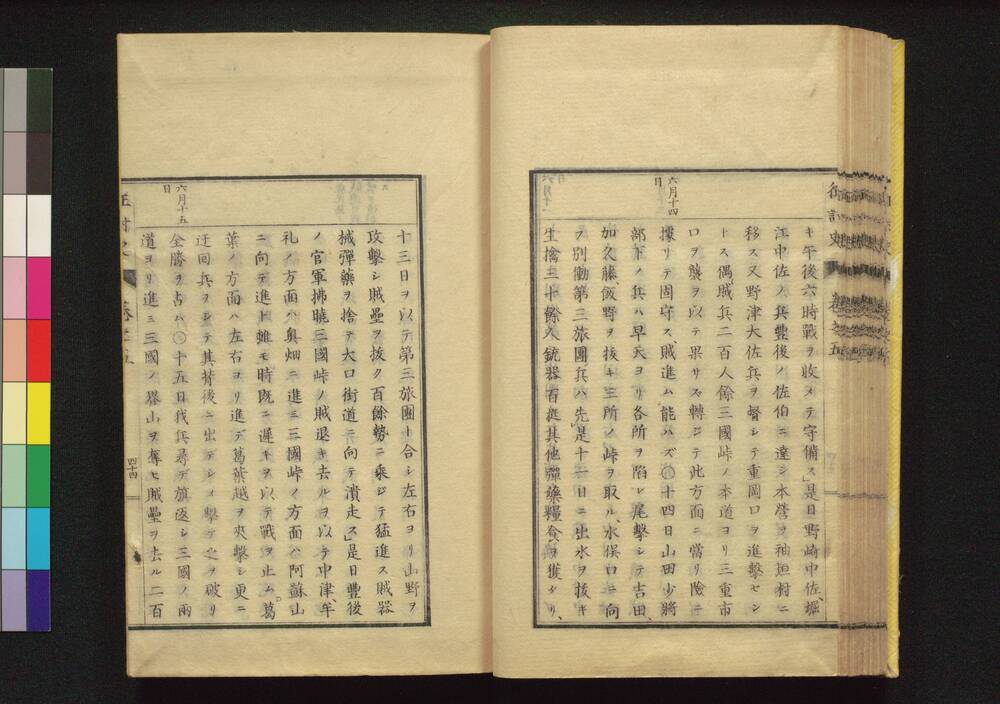 キ午後六時戰ヲ收メテ守備ス」是日野崎中佐、堀
江中佐ノ兵豐後ノ佐伯ニ達シ本營ヲ袖垣村ニ
移ス又野津大佐兵ヲ督シテ重岡口ヲ進擊セン
トス偶賊兵二百人餘三國峠ノ本道ヨリ三重市
口ヲ襲ヲ以テ果サス轉シテ此方面ニ當リ險ニ
據リテ固守ス、賊進ム能ハズ〇十四日山田少將
六月十四
日
部下ノ兵ハ早天ヨリ各所ヲ陷レ尾擊シテ吉田、
加久藤、飯野ヲ拔キ三所ノ峠ヲ取ル、水俣口ニ向
ヲ別働第三旅團兵ハ先是十一日ニ出水ヲ拔キ
生擒三十餘人銃器百挺其他彈藥糧食ヲ獲タリ、
征討史 卷之五
十三日ヲ以テ第三旅團ト合シ左右ヨリ山野ヲ
攻擊シ賊壘ヲ拔ク百餘勢ニ乘シテ猛進ス賊器
械彈藥ヲ捨テ大口街道ニ向テ潰走ス」是日豐後
ノ官軍拂曉三國峠ノ賊退キ去ルヲ以テ中津、牟
礼ノ方面ハ奥畑ニ進ミ三國峠ノ方面ハ阿蘇山
ニ向テ進ト雖モ時既ニ遲キヲ以テ戰ヲ止ム。葛
葉ノ方面ハ左右ヨリ進デ葛葉越ヲ夾擊シ更ニ
迂回兵ヲシテ其背後ニ出テシメ擊テ之ヲ破リ
全勝ヲ占ム〇十五日我兵尋デ旗返シ三國ノ兩
六月十五
日
道ヨリ進ミ三國ノ
山ヲ奪ヒ賊壘ヲ去ル二百
四十四